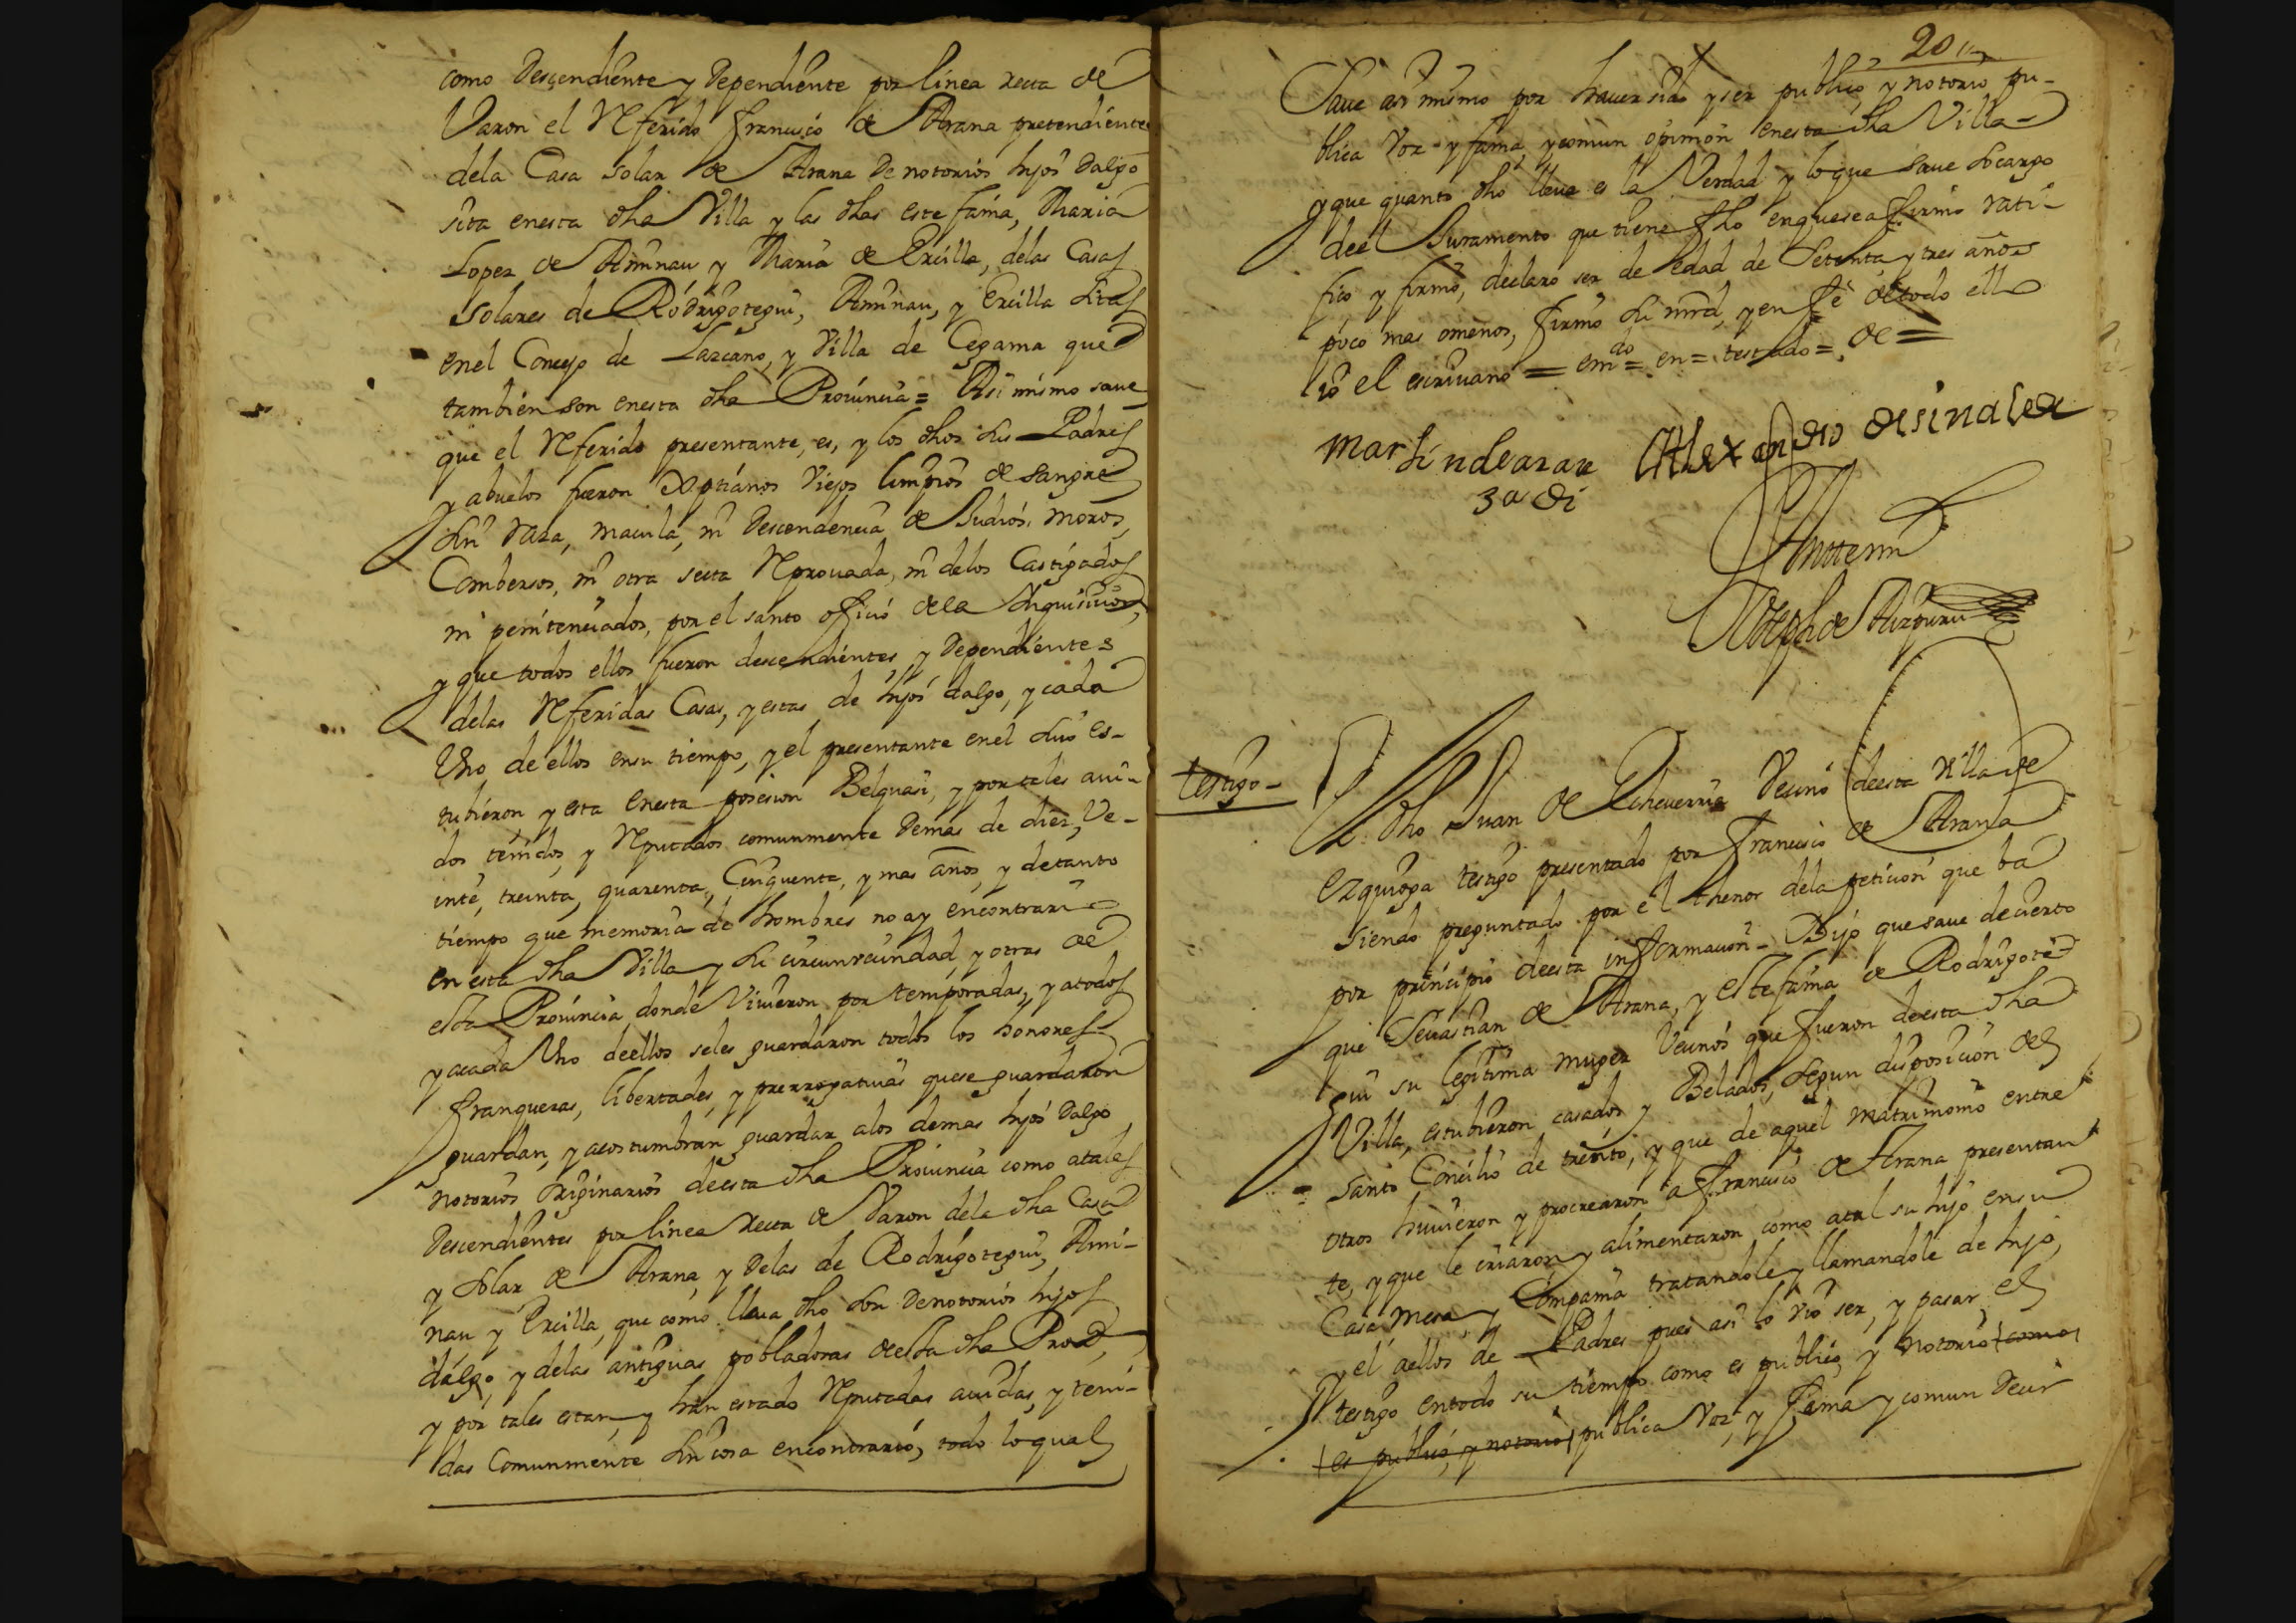 como Descendiente y Dependiente por linea recta de
Varon el Referido Francisco de Arana pretendiente
dela Casa solar de Arana De notorios hijos Dalgo
sita enesta dha Villa y las dhas estefania, Maria
Lopez de Aminau y Maria de Ercilla, delas Casas
Solares de Rodrigotegui, Aminau, y Ercilla sitas
enel Concejo de Lazcano, y Villa de Cegama que
tambien son enesta dha Prouincia = Asi mismo saue
que el Referido presentante, es, y los dhos sus Padres
y abuelos fueron Xptianos Viejos limpios de sangre
sin raza, macula, ni Descendencia de Judios, moros,
Combersos, ni otra secta Reprouada, ni delos Castigados
ni penitenciados, por el santo oficio dela Inquisicion,
y que todos ellos fueron descendientes y Dependientes
delas Referidas Casas, y estas de hijos dalgo, y cada
Vno de ellos ensu tiempo, y el presentante enel suio es-
tubieron y esta enesta posesion Belquasi, y por tales aui-
dos tenidos, y Reputados comunmente Demas de diez, Ve-
inte, treinta, quarenta, Cinquenta, y mas años, y detanto
tiempo que memoria de hombres no ay encontrario
en esta dha Villa y su circunvecindad, y otras de
esta Prouincia donde Viuieron por temporadas, y atodos
y acada Vno deellos seles guardaron todos los honores
franquezas, libertades, y prerrogatiuas quese guardaron
guardan, y acostumbran guardar alos demas hijos Dalgo
notorios originarios deesta dha Prouincia como atales
Descendientes por linea Recta de Varon dela dha Casa
y solar de Arana, y Delas de Rodrigotegui, Ami-
nau y Ercilla, que como lleua dho son Denotorios hijos
dalgo, y delas antiguas pobladoras deesta dha Prou<sup>a</sup>,
y por tales estan y han estado Reputadas auidas, y teni-
das Comunmente sin cosa encontrario, todo lo qual
20
Saue asi mismo por hauer sido y ser publico, y notorio pu-
blica voz y fama, y comun opinion enesta dha Villa
y que quanto dho lleua es la Verdad y loque saue socargo
deel Juramento que tiene fho enquese afirmo rati-
fico y firmo, declaro ser de edad de Setenta y tres años
poco mas omenos, firmo su mrd, y en fe detodo ello
io el escriuano = em<sup>do</sup> = en = testado = de =
Martin de ara
zadi
Alexandro
Antte mi
Joseph de Aizpuru
testigo-
El dho Juan de Echeuerria Vecino deesta Villa de
Ezquioga testigo presentado por Francisco de Arana
siendo preguntado por el thenor dela peticion que ba
por principio deesta informacion - Dijo que saue decierto
que Seuastian de Arana, y estefania de Rodrigote-
gui su legitima muger Vecinos que fueron deesta dha
Villa, estubieron casados y Belados, segun disposicion del
santo Concilio de trento, y que de aquel matrimonio entre
otros huuieron y procrearon a Francisco de Arana presentan
te, y que le criaron y alimentaron como atal su hijo ensu
Casa, mesa, y Compania tratandole y llamandole de hijo,
y el aellos de Padres pues asi lo vio ser, y pasar el
testigo entodo su tiempo como es publico, y notorio como
es publico, y notorio publica Voz, y fama y comun Decir